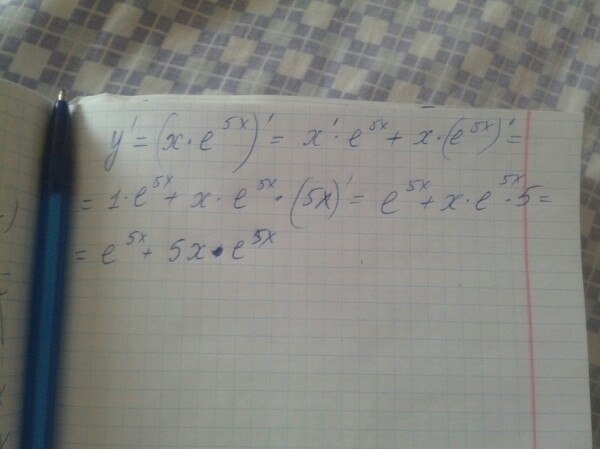 y' = (x · e^5x)' = x' · e^5x + x · (e^5x)' =
= 1 · e^5x + x · e^5x · (5x)' = e^5x + x · e^5x · 5 =
= e^5x + 5x · e^5x